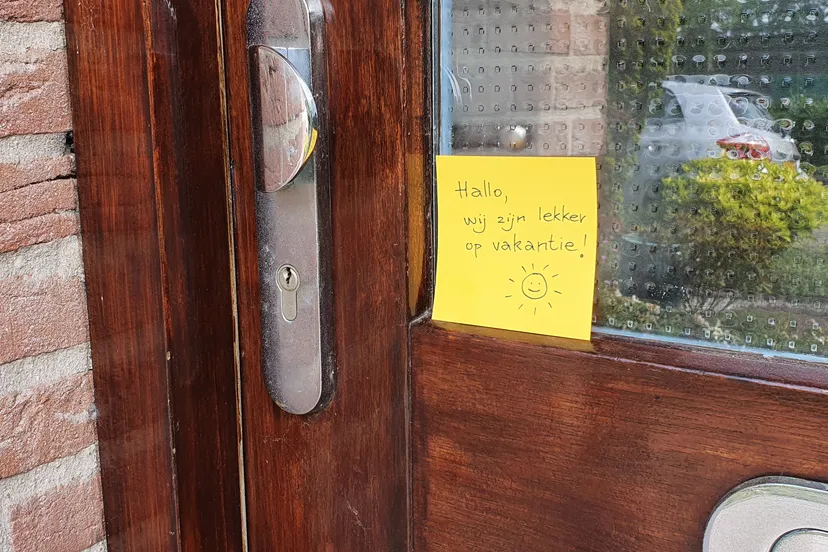 Hallo,
wij zijn lekker
op vakantie!